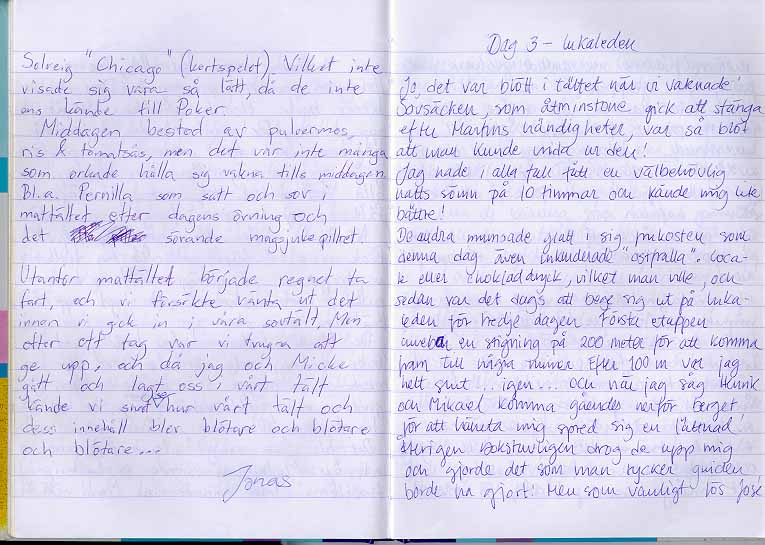 Solveig "Chicago" (kortspelet). Vilket inte
visade sig vara så lätt, då de inte
ens kände till Poker.
Middagen bestod av pulvermos,
ris & tomatsås, men det var inte många
som orkade hålla sig vakna tills middagen.
Bl.a. Pernilla som satt och sov i
mattältet efter dagens övning och
det sörande magsjuke pilhet.
Utanför mattältet började regnet ta
fart, och vi försökte vänta ut det
innan vi gick in i våra sovtält. Men
efter ett tag var vi tvugna att
ge upp, och då jag och Micke
gått och lagt oss i vårt tält
kände vi snart hur vårt tält och
dess innehåll blev blötare och blötare
och blötare...
Jonas
Dag 3 - Inkaleden
Jo, det var blött i tältet när vi vaknade!
Sovsäcken, som åtminstone gick att stänga
efter Martins händigheter, var så blöt
att man kunde vrida ur den!
Jag hade i alla fall fått en välbehövlig
natts sömn på 10 timmar och kände mig lite
bättre!
De andra mumsade glatt i sig frukosten som
denna dag även inkluderade "ostfralla". Coca-
te eller chokladdryck, vilket man ville, och
sedan var det dags att bege sig ut på Inka-
leden för tredje dagen. Första etappen
innebar en stigning på 200 meter för att komma
fram till några ruiner. Efter 100 m var jag
helt slut... igen... och när jag såg Henrik
och Mikael komma gåendes nerför berget
för att hämta mig spred sig en lättnad
återigen. Bokstavligen drog de upp mig
och gjorde det som man tycker guiden
borde ha gjort! Men som vanligt lös José